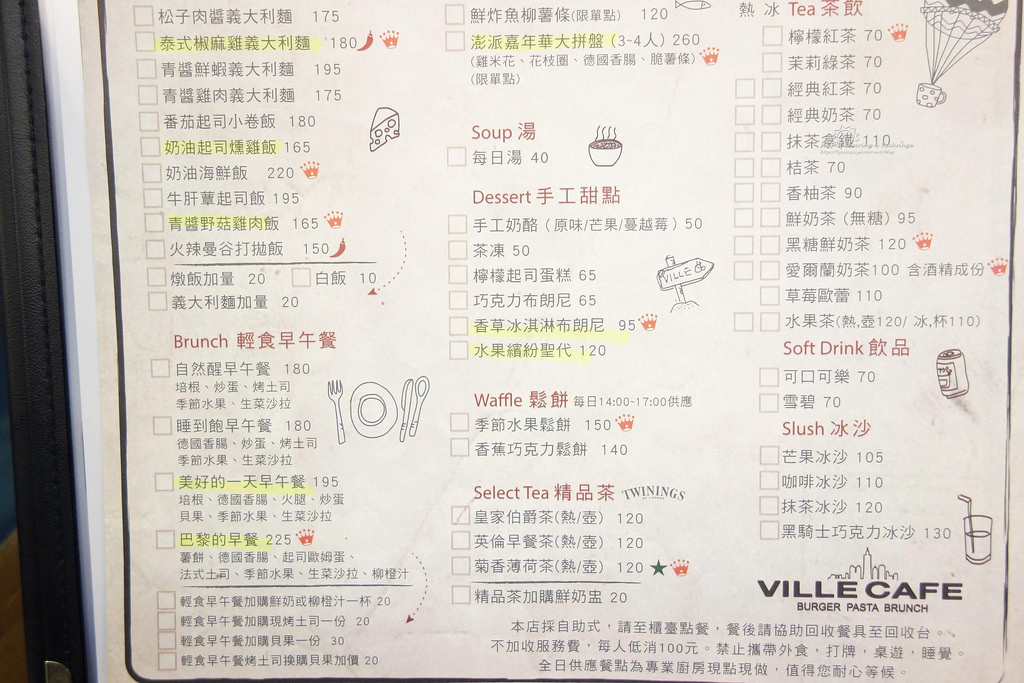 松子肉醬義大利麵 175
泰式椒麻雞義大利麵 180
青醬鮮蝦義大利麵 195
青醬雞肉義大利麵 175
番茄起司小卷飯 180
奶油起司燻雞飯 165
奶油海鮮飯 220
牛肝蕈起司飯 195
青醬野菇雞肉飯 165
火辣曼谷打拋飯 150
燉飯加量 20 白飯 10
義大利麵加量 20
Brunch 輕食早午餐
自然醒早午餐 180
培根、炒蛋、烤土司
季節水果、生菜沙拉
睡到飽早午餐 180
德國香腸、炒蛋、烤土司
季節水果、生菜沙拉
美好的一天早午餐 195
培根、德國香腸、火腿、炒蛋
貝果、季節水果、生菜沙拉
巴黎的早餐 225
薯餅、德國香腸、起司歐姆蛋、
法式土司、季節水果、生菜沙拉、柳橙汁
輕食早午餐加購鮮奶或柳橙汁一杯 20
輕食早午餐加購現烤土司一份 20
輕食早午餐加購貝果一份 30
輕食早午餐烤土司換購貝果加價 20
鮮炸魚柳薯條(限單點) 120
澎派嘉年華大拼盤 (3-4人) 260
(雞米花、花枝圈、德國香腸、脆薯條)
(限單點)
Soup 湯
每日湯 40
Dessert 手工甜點
手工奶酪 (原味/芒果/蔓越莓) 50
茶凍 50
檸檬起司蛋糕 65
巧克力布朗尼 65
香草冰淇淋布朗尼 95
水果繽紛聖代 120
VILLE
Waffle 鬆餅 每日14:00-17:00供應
季節水果鬆餅 150
香蕉巧克力鬆餅 140
Select Tea 精品茶 TWININGS
皇家伯爵茶(熱/壺) 120
英倫早餐茶(熱/壺) 120
菊香薄荷茶(熱/壺) 120
精品茶加購鮮奶盅 20
熱 冰 Tea 茶飲
檸檬紅茶 70
茉莉綠茶 70
經典紅茶 70
經典奶茶 70
抹茶拿鐵 110
桔茶 70
香柚茶 90
鮮奶茶 (無糖) 95
黑糖鮮奶茶 120
愛爾蘭奶茶100 含酒精成份
草莓歐蕾 110
水果茶(熱,壺120/ 冰,杯110)
Soft Drink 飲品
可口可樂 70
雪碧 70
Slush 冰沙
芒果冰沙 105
咖啡冰沙 110
抹茶冰沙 120
黑騎士巧克力冰沙 130
VILLE CAFE
BURGER PASTA BRUNCH
本店採自助式，請至櫃臺點餐，餐後請協助回收餐具至回收台。
不加收服務費，每人低消100元。禁止攜帶外食，打牌，桌遊，睡覺。
全日供應餐點為專業廚房現點現做，值得您耐心等候。